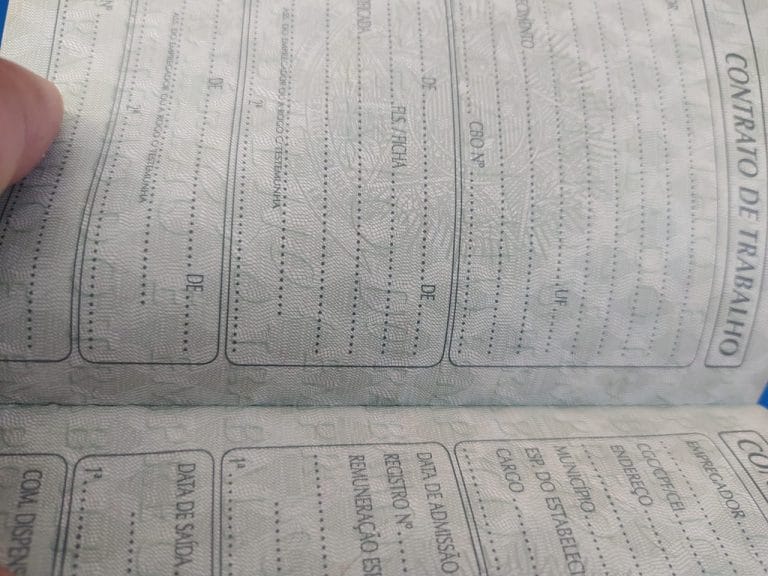 CONTRATO DE TRABALHO
UF
CBO Nº
DE DE
FLS./FICHA
ASS. DO EMPREGADOR OU A ROGO C/TESTEMUNHA
2ª
DE DE
ASS. DO EMPREGADOR OU A ROGO C/TESTEMUNHA
2ª
Nº
EMPREGADOR
CGC/CPF/CEI
ENDEREÇO
MUNICÍPIO
ESP. DO ESTABELECI
CARGO
DATA DE ADMISSÃO
REGISTRO Nº
REMUNERAÇÃO ESP
1ª
DATA DE SAÍDA
1ª
COM. DISPENS